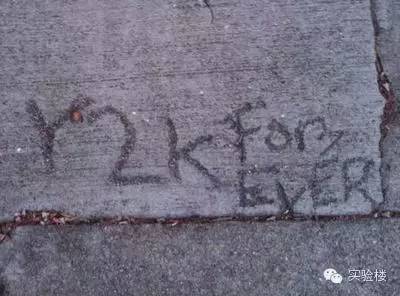 Y2K For
EVER
实验楼